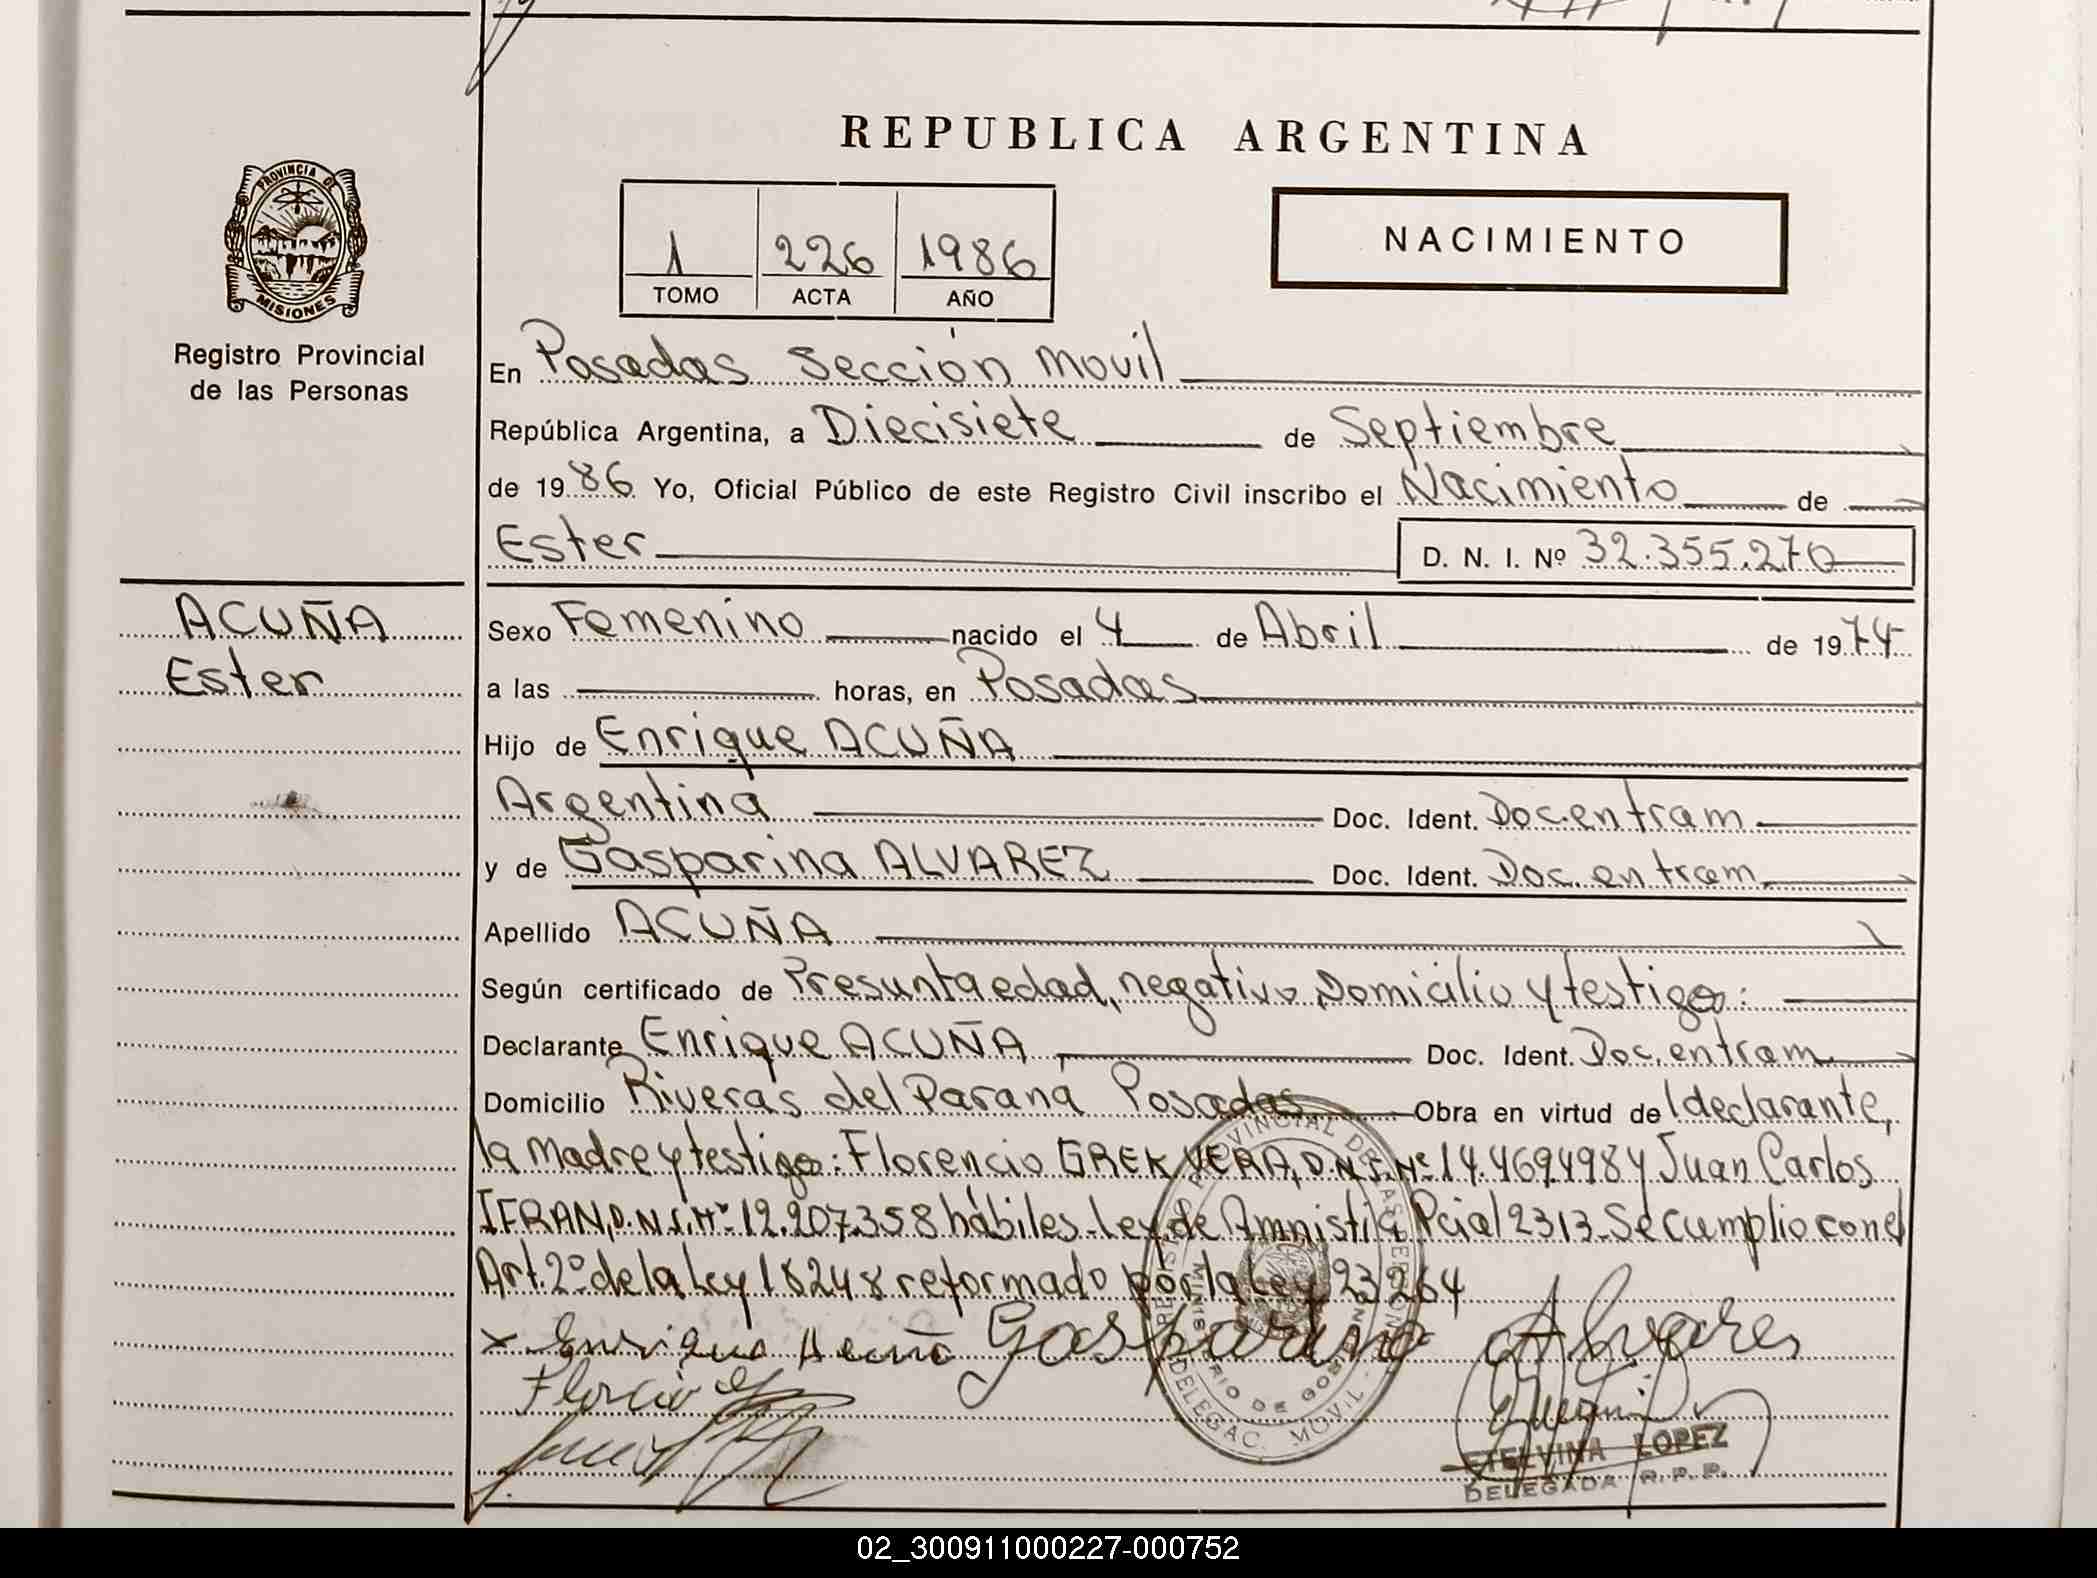 REPUBLICA ARGENTINA
PROVINCIA DE
MISIONES
Registro Provincial
de las Personas
1 226 1986
TOMO ACTA AÑO
NACIMIENTO
En Posadas Sección Movil
República Argentina, a Diecisiete de Septiembre
de 1986 Yo, Oficial Público de este Registro Civil inscribo el Nacimiento de
Ester D. N. I. Nº 32.355.270
ACUÑA
Ester
Sexo Femenino nacido el 4 de Abril de 1974
a las horas, en Posadas
Hijo de Enrique ACUÑA
Argentina Doc. Ident. Doc.en tram
y de Gasparina ALVAREZ Doc. Ident. Doc. en tram
Apellido ACUÑA
Según certificado de Presunta edad, negativo, Domicilio y testigo:
Declarante Enrique ACUÑA Doc. Ident. Doc. en tram.
Domicilio Riveras del Paraná Posadas Obra en virtud de l declarante,
la Madre y testigo: Florencio GREK VERA, D.N.I. Nº 14.469.498 y Juan Carlos
IFRAN, D.N.I. Nº 12.207.358 hábiles-Ley de Amnistia Pcial 2313-Se cumplio con el
Art. 2º de la Ley 18248 reformado por la Ley 23264
x Enrique Acuña Gasparina Alvares
ETELVINA LOPEZ
DELEGADA R.P.P.
02_300911000227-000752